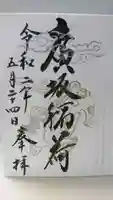 廣坂稲荷
令和二年
五月二十四日奉拝